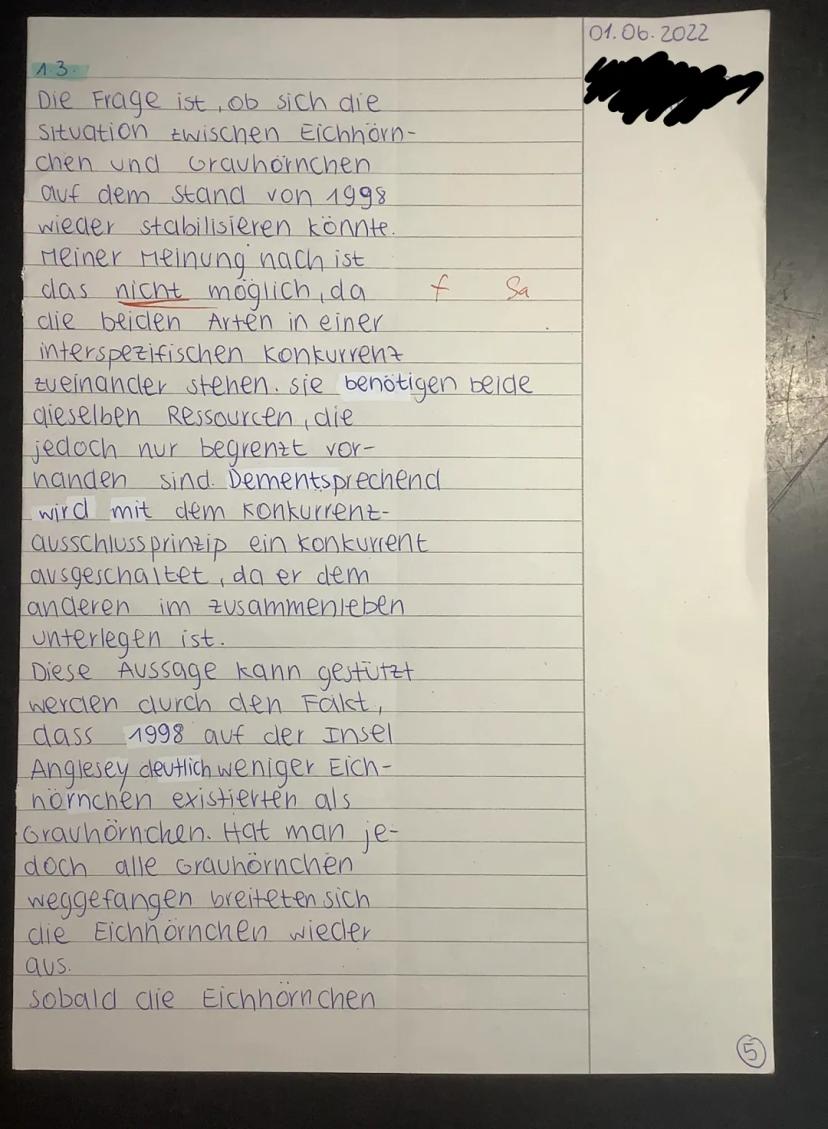 01.06.2022
1.3.
Die Frage ist, ob sich die
Situation zwischen Eichhörn-
chen und Grauhörnchen
auf dem Stand von 1998
wieder stabilisieren könnte.
Meiner Meinung nach ist
das nicht möglich, da f Sa
die beiden Arten in einer
interspezifischen Konkurrenz
zueinander stehen. Sie benötigen beide
dieselben Ressourcen, die
jedoch nur begrenzt vor-
handen sind. Dementsprechend
wird mit dem Konkurrenz-
ausschlussprinzip ein Konkurrent
ausgeschaltet, da er dem
anderen im Zusammenleben
unterlegen ist.
Diese Aussage kann gestützt
werden durch den Fakt,
dass 1998 auf der Insel
Anglesey deutlich weniger Eich-
hörnchen existierten als
Grauhörnchen. Hat man je-
doch alle Grauhörnchen
weggefangen breiteten sich
die Eichhörnchen wieder
aus.
Sobald die Eichhörnchen
5